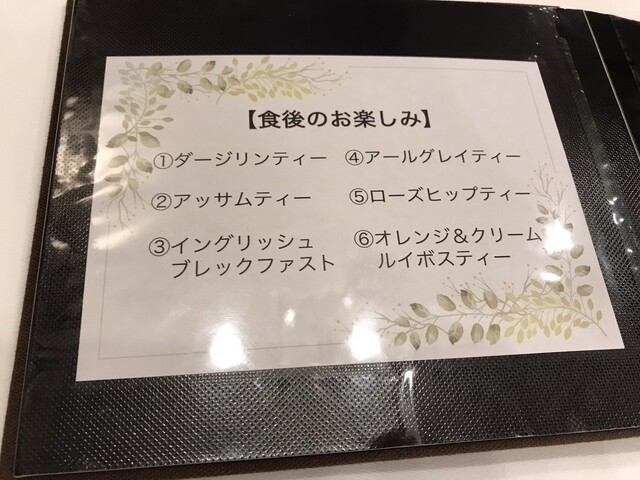 【食後のお楽しみ】
①ダージリンティー
②アッサムティー
③イングリッシュ
ブレックファスト
④アールグレイティー
⑤ローズヒップティー
⑥オレンジ&クリーム
ルイボスティー